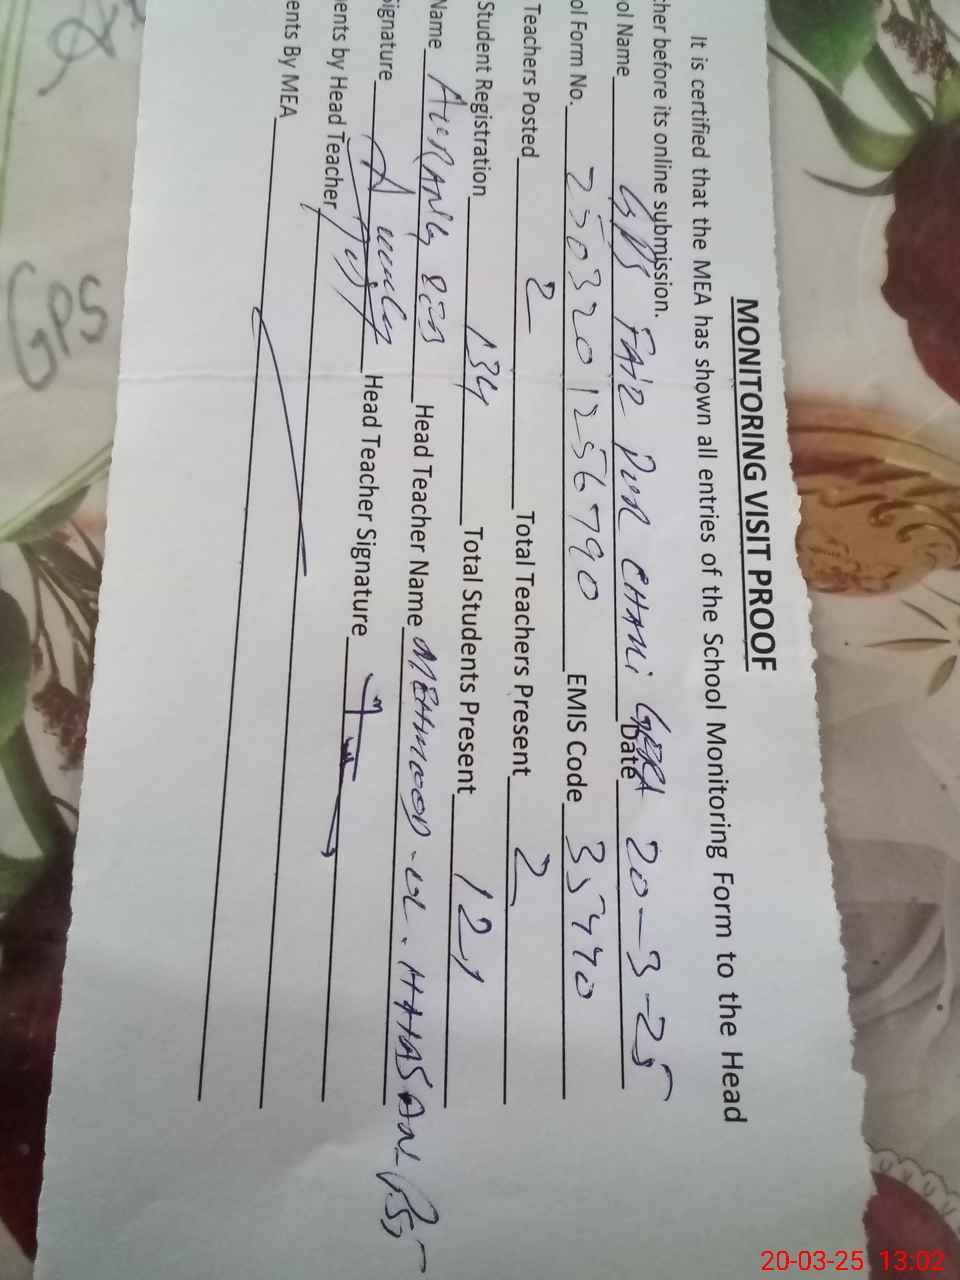 MONITORING VISIT PROOF
It is certified that the MEA has shown all entries of the School Monitoring Form to the Head
cher before its online submission.
ol Name GPS FAIZ PUR CHAMI Date 20-3-25
ol Form No. 2503201256790 EMIS Code 35440
Teachers Posted 2 Total Teachers Present 2
Student Registration 134 Total Students Present 121
Name AURANG ZEB Head Teacher Name MEHMOOD-UL-HHASAN-PST
Signature Head Teacher Signature
ents by Head Teacher
ents By MEA
GPS
20-03-25 13:02